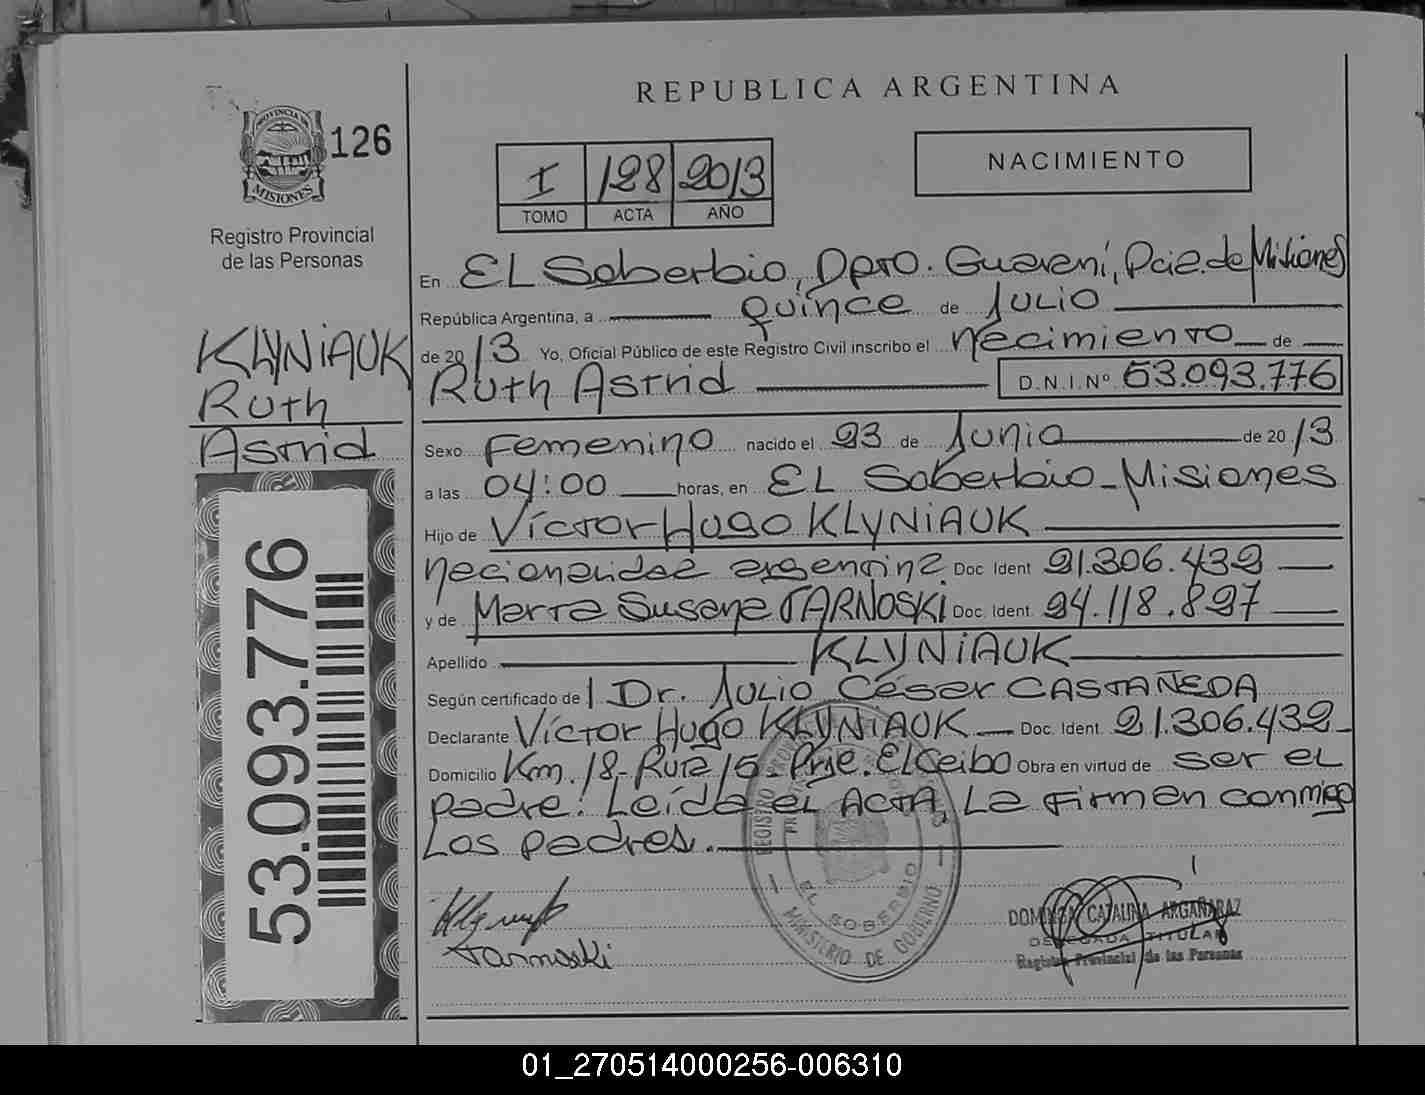 REPUBLICA ARGENTINA
PROVINCIA DE
MISIONES
126
Registro Provincial
de las Personas
I 128 2013
TOMO ACTA AÑO
NACIMIENTO
En EL Soberbio, Dpto. Guaraní, Pcia. de Misiones
República Argentina, a quince de Julio
de 2013 Yo, Oficial Público de este Registro Civil inscribo el nacimiento de
Ruth Astrid D.N.I. Nº 53.093.776
KLYNiAUK
Ruth
Astrid
Sexo Femenino nacido el 23 de Junio de 2013
a las 04:00 horas, en EL Soberbio-Misiones
Hijo de Víctor Hugo KLYNiAUK
nacionalidad argentina Doc Ident 21.306.432
y de Marta Susana TARNOSKi Doc. Ident. 24.118.827
Apellido KLYNiAUK
Según certificado de Dr. Julio César CASTAÑEDA
Declarante Víctor Hugo KLYNiAUK Doc. Ident. 21.306.432
Domicilio Km. 18-Ruta 15-Prje. El Ceibo Obra en virtud de ser el
padre. Leída el ACTA, La firman conmigo
Los padres.
53.093.776
Tarnoski
EL SOBERBIO
MINISTERIO DE GOBIERNO
CATALINA ARGAÑARAZ
DELEGADA TITULAR
Registro Provincial de las Personas
01_270514000256-006310